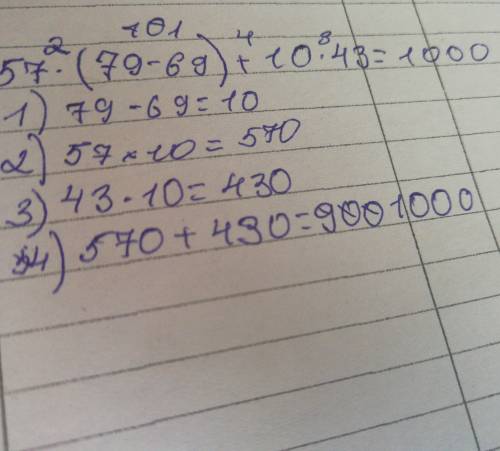 101
2 4 3
57·(79-69)+10·43=1000
1) 79-69=10
2) 57×10=570
3) 43·10=430
4) 570+430=9001000